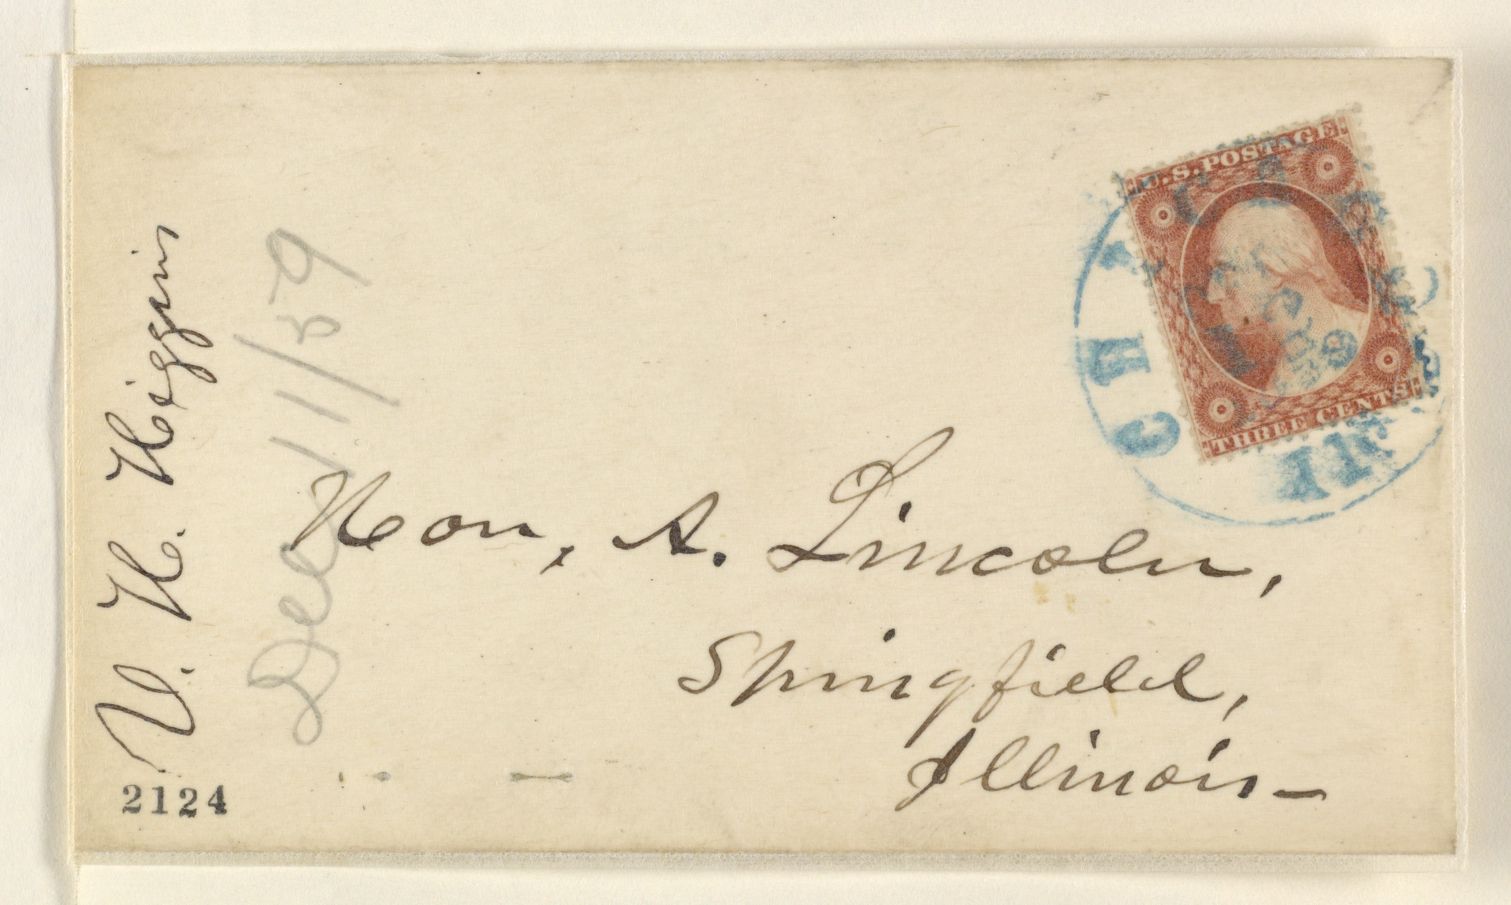 U.S. POSTAGE
THREE CENTS
CHICAGO
V. H. Higgins
Dec 11/59
Hon, A. Lincoln,
Springfield,
Illinois—
2124